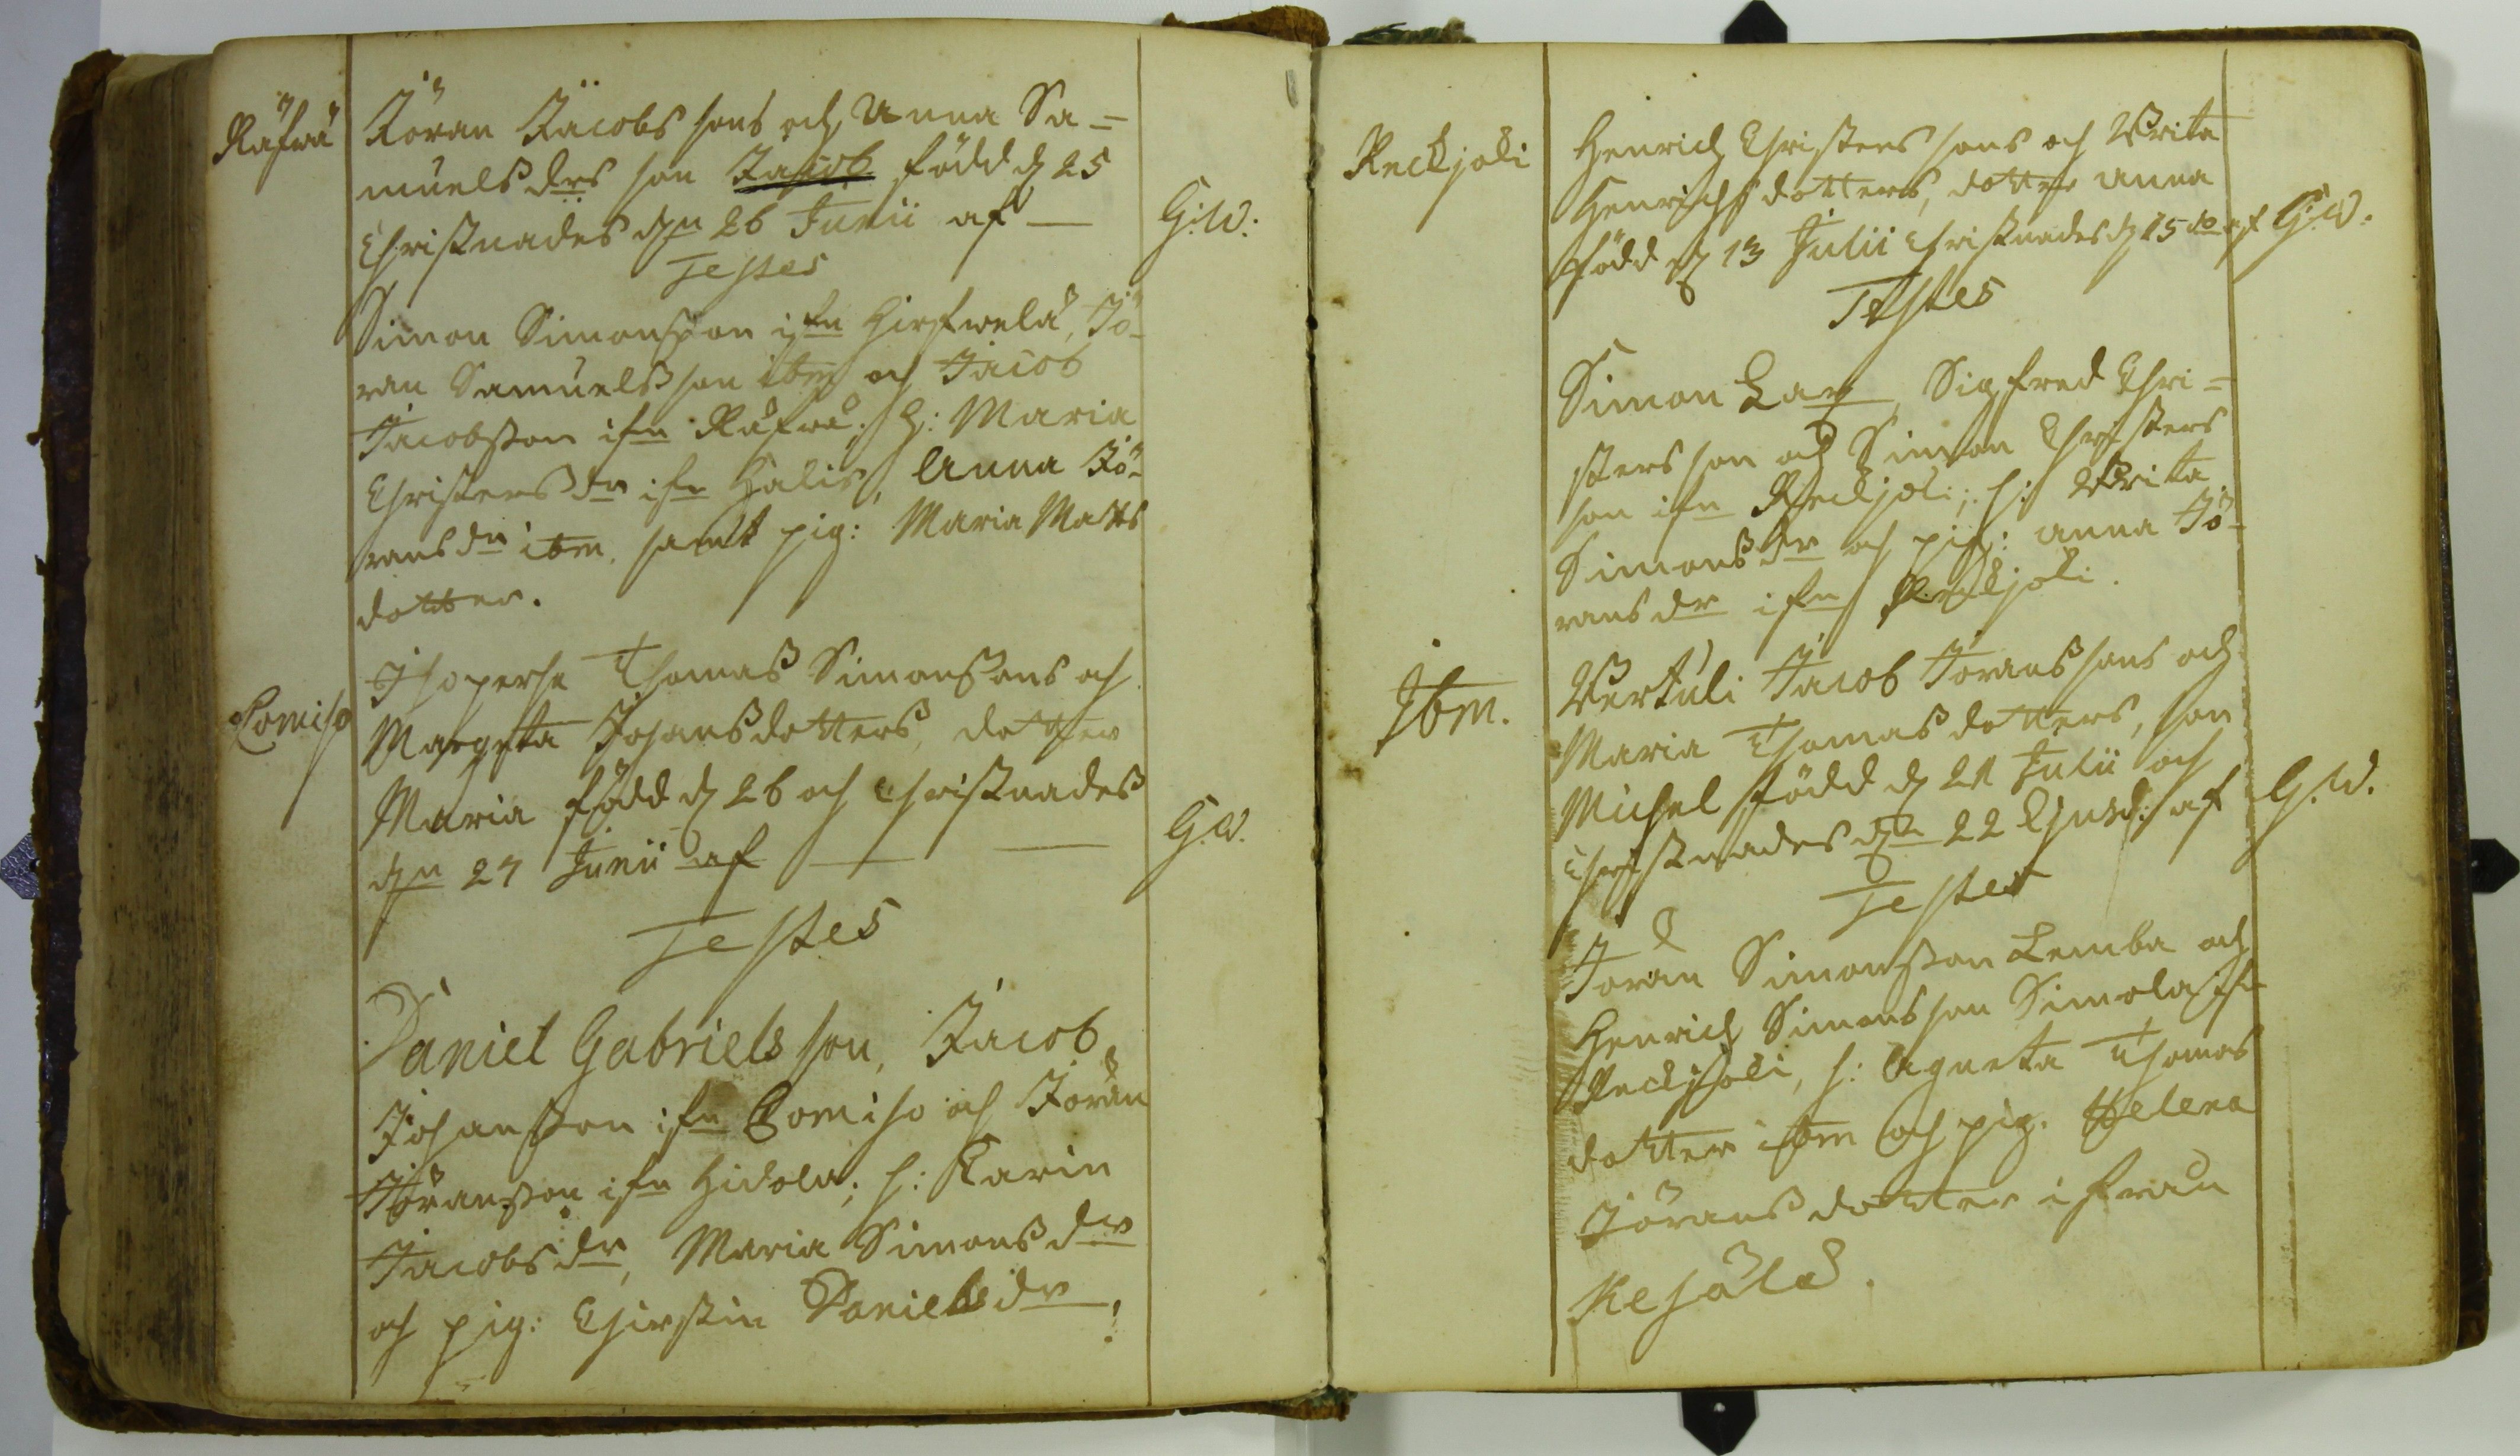 Räfwä
Jöran Jacobs sons och Anna Sa=
muelsdrs son Jacob född d 25
Christnades dn 26 Junii af —
G:W:
Testes
Simon Simonsson ifn Hirfwelä, Jö-
ran Samuelsson ibm och Jacob
Jacobsson ifn Räfwä; h: Maria
Christersdr ifn Halis, Anna Jö-
ransdr ibm, samt pig: Maria Matts
dotter.
Lomiso
Thomas Simonssons och
Margeta Johansdotters, dotter
Maria född d 26 och Christnades
dn 27 Junii af —
G.W.
Testes
Daniel Gabrielsson, Jacob
Johansson ifn Lomiso och Jöran
Jöransson ifn Hidola; h: Karin
Jacobsdr, Maria Simonsdr
och pig: Chirstin Danielsdr
Reckjoli
Henrich Christers sons och Brita
Henrichsdotters, dotter Anna
född d 13 Julii Christnades d 15 do af
G:W.
Testes
Simon Lax, Sigfred Chri=
sters son och Simon Christers
son ifn Reckjoli; h: Brita
Simonsdr och pig: Anna Jö-
ransdr ifn Reckjoli.
Ibm.
Jacob Jöranssons och
Maria Thomasdotters, son
Michel född d 21 Julii och
Christnades dn 22 Ejusd: af
G.W.
Testes
Jöran Simonsson Lemba och
Henrich Simonsson Simola ifn
Reckjoli, h: Agneta Thomas
dotter ibm och pig. Helena
Jöransdotter ifrån